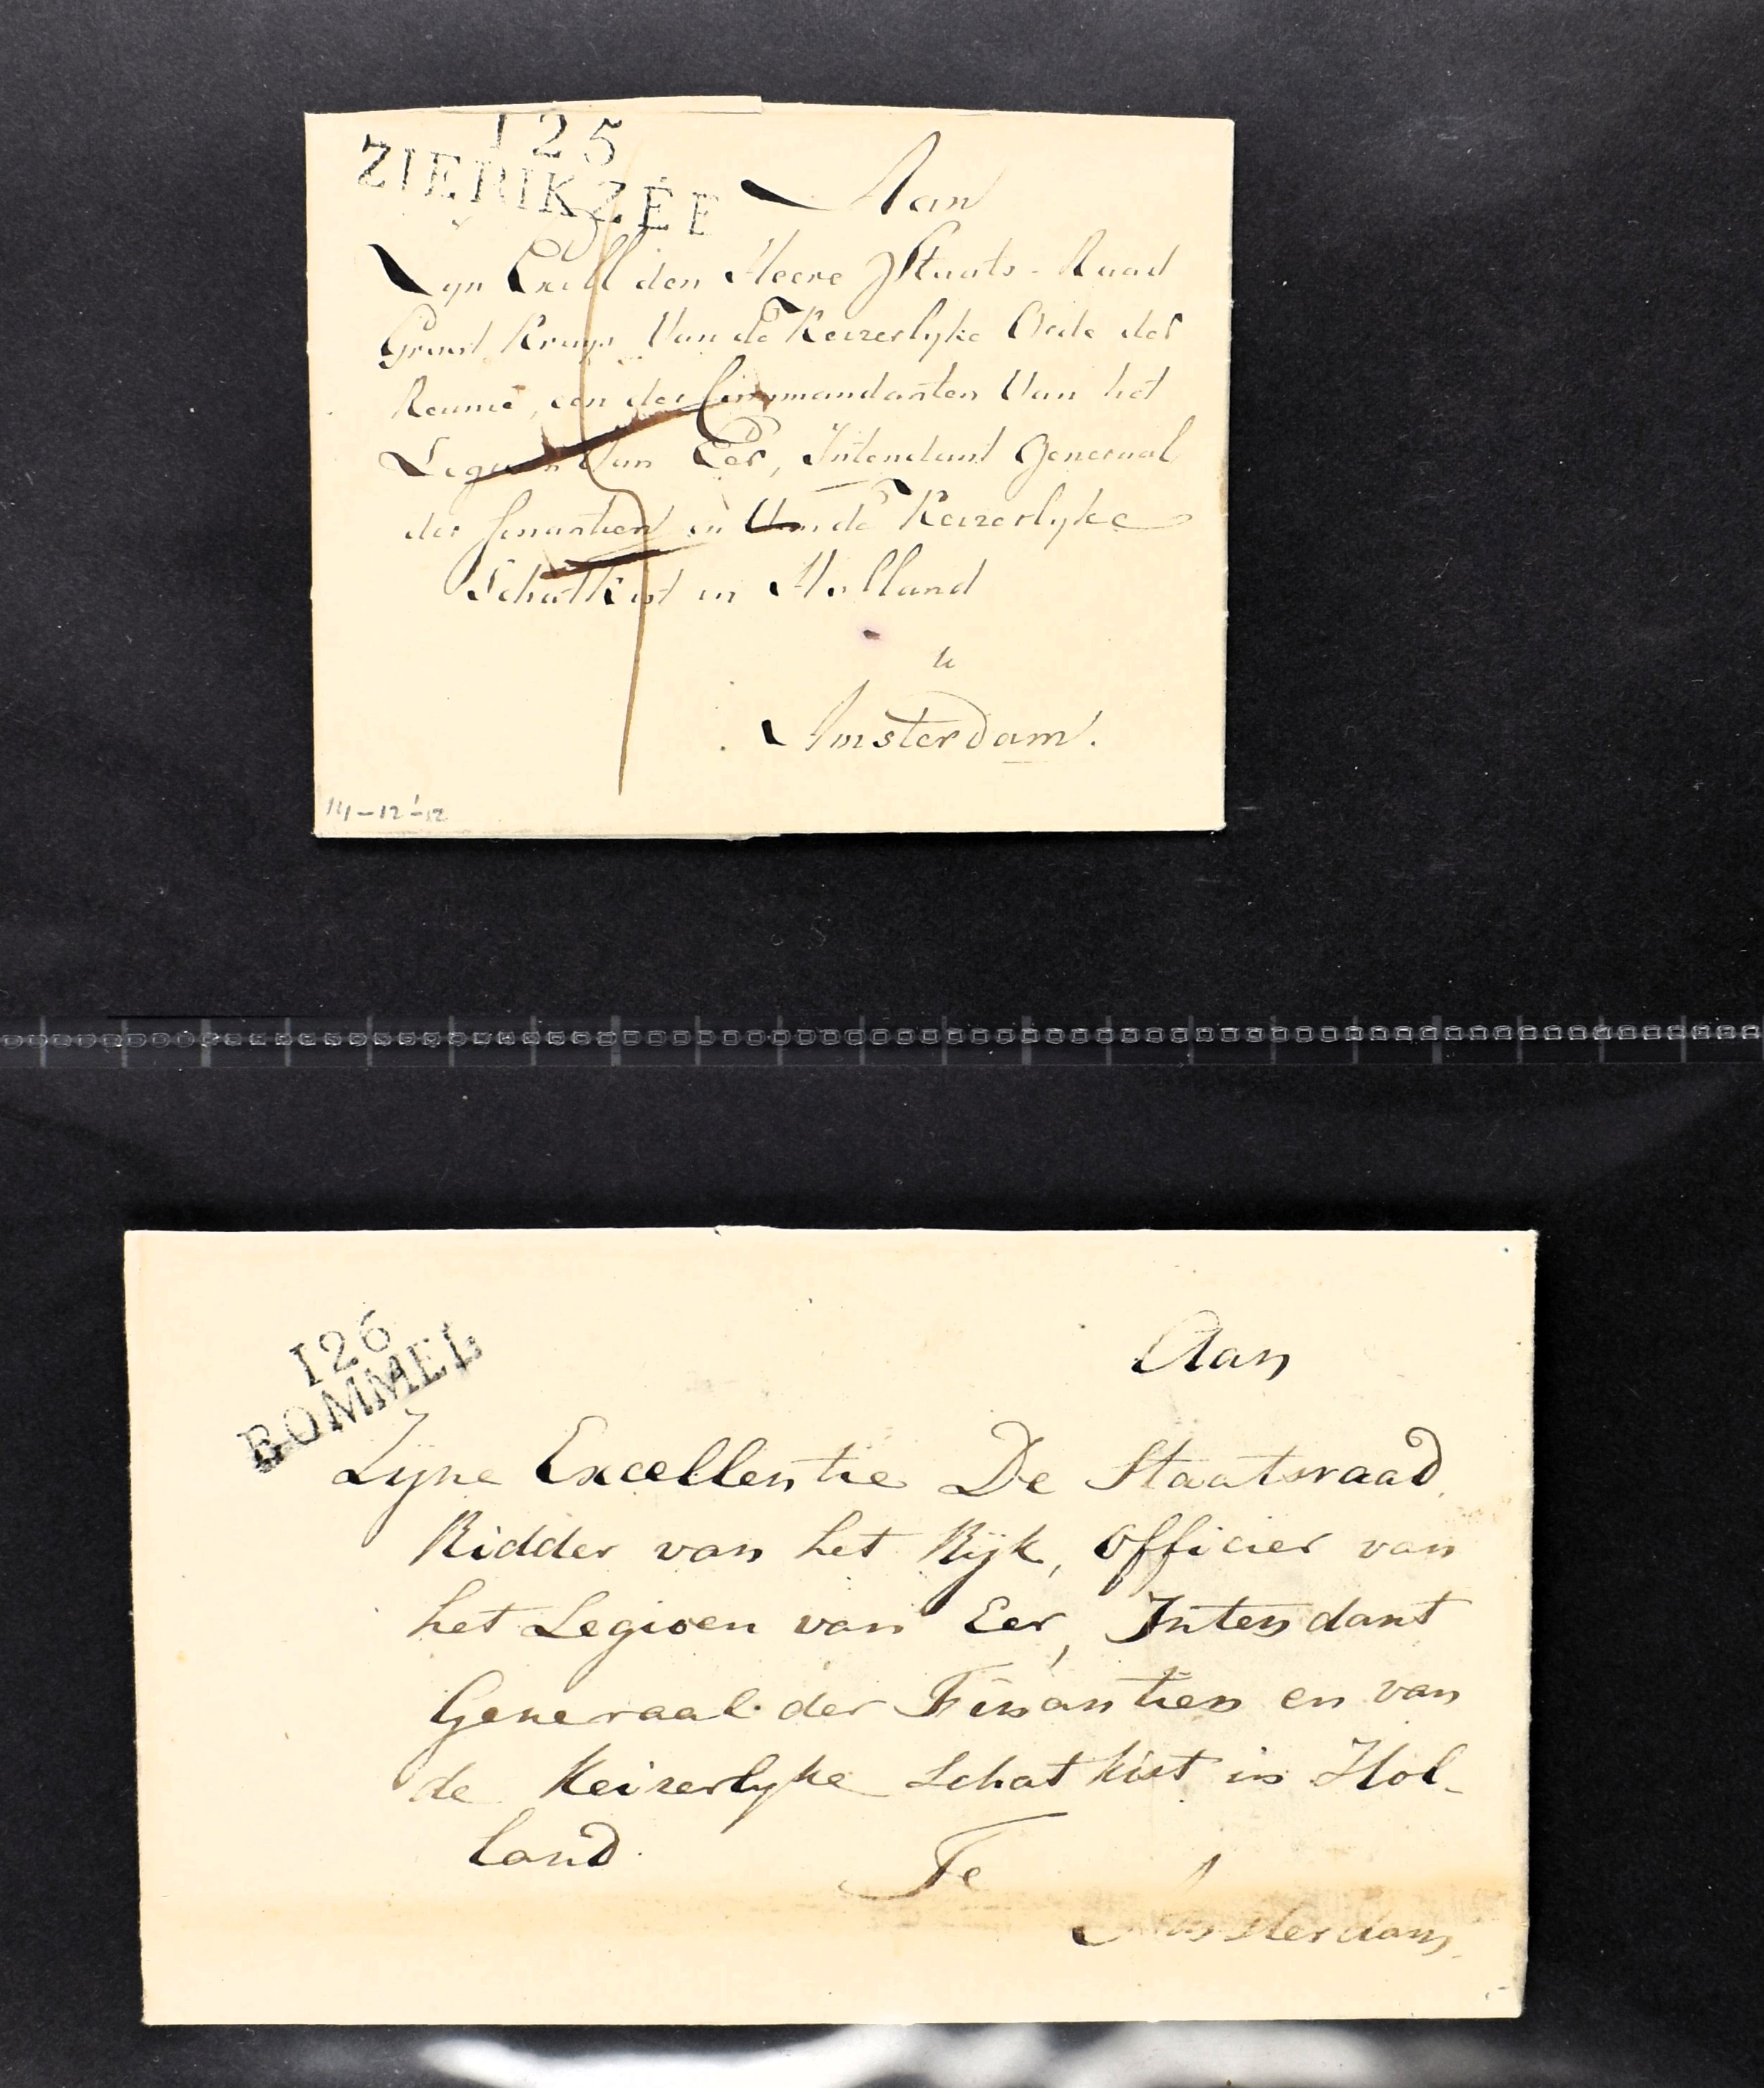 125
ZIERIKZÉE
Aan
Zyn Excell den Heere Staats-Raad
Groot Kruys Van de Keizerlyke Orde der
Reunie, een der Commandanten Van het
Legioen Van Eer, Intendant Generaal
der finantien en Van de Keizerlyke
Schatkist in Holland
te
Amsterdam.
14-12-'12
126
BOMMEL
Aan
Zyne Excellentie De Staatsraad
Ridder van het Rijk, Officier van
het Legioen van Eer, Intendant
Generaal der Finantien en van
de Keizerlyke Schatkist in Hol-
land.
Te
Amsterdam